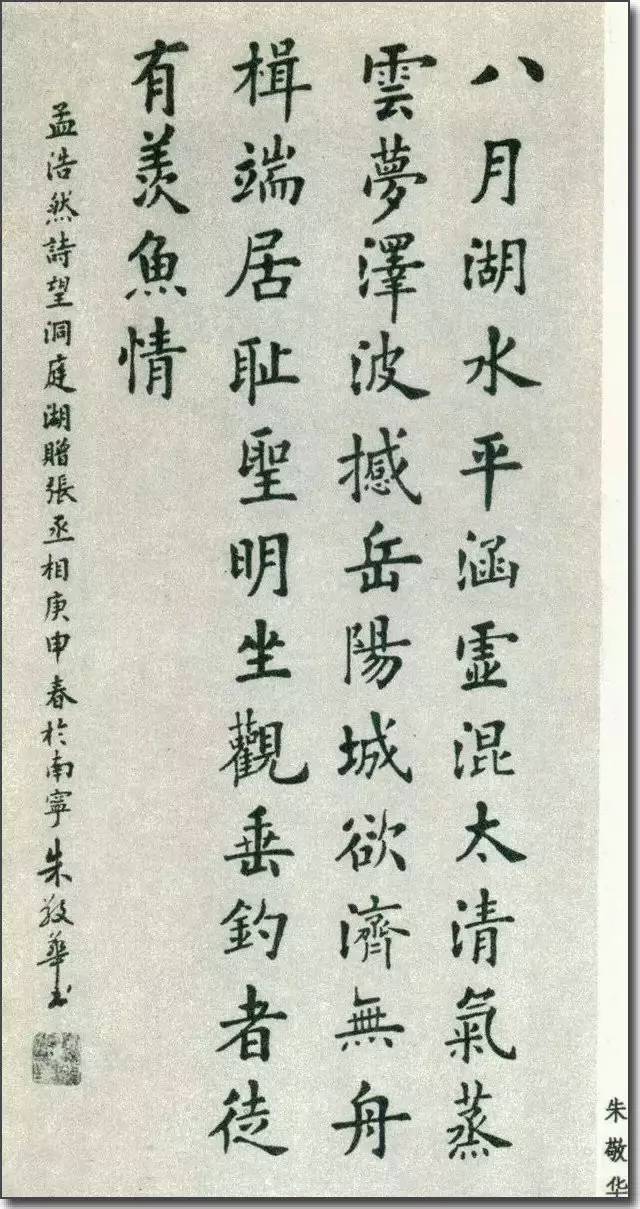 八月湖水平涵虛混太清氣蒸
雲夢澤波撼岳陽城欲濟無舟
楫端居耻聖明坐觀垂釣者徒
有羨魚情
孟浩然詩望洞庭湖贈張丞相庚申春於南寧朱敬華書
朱敬华